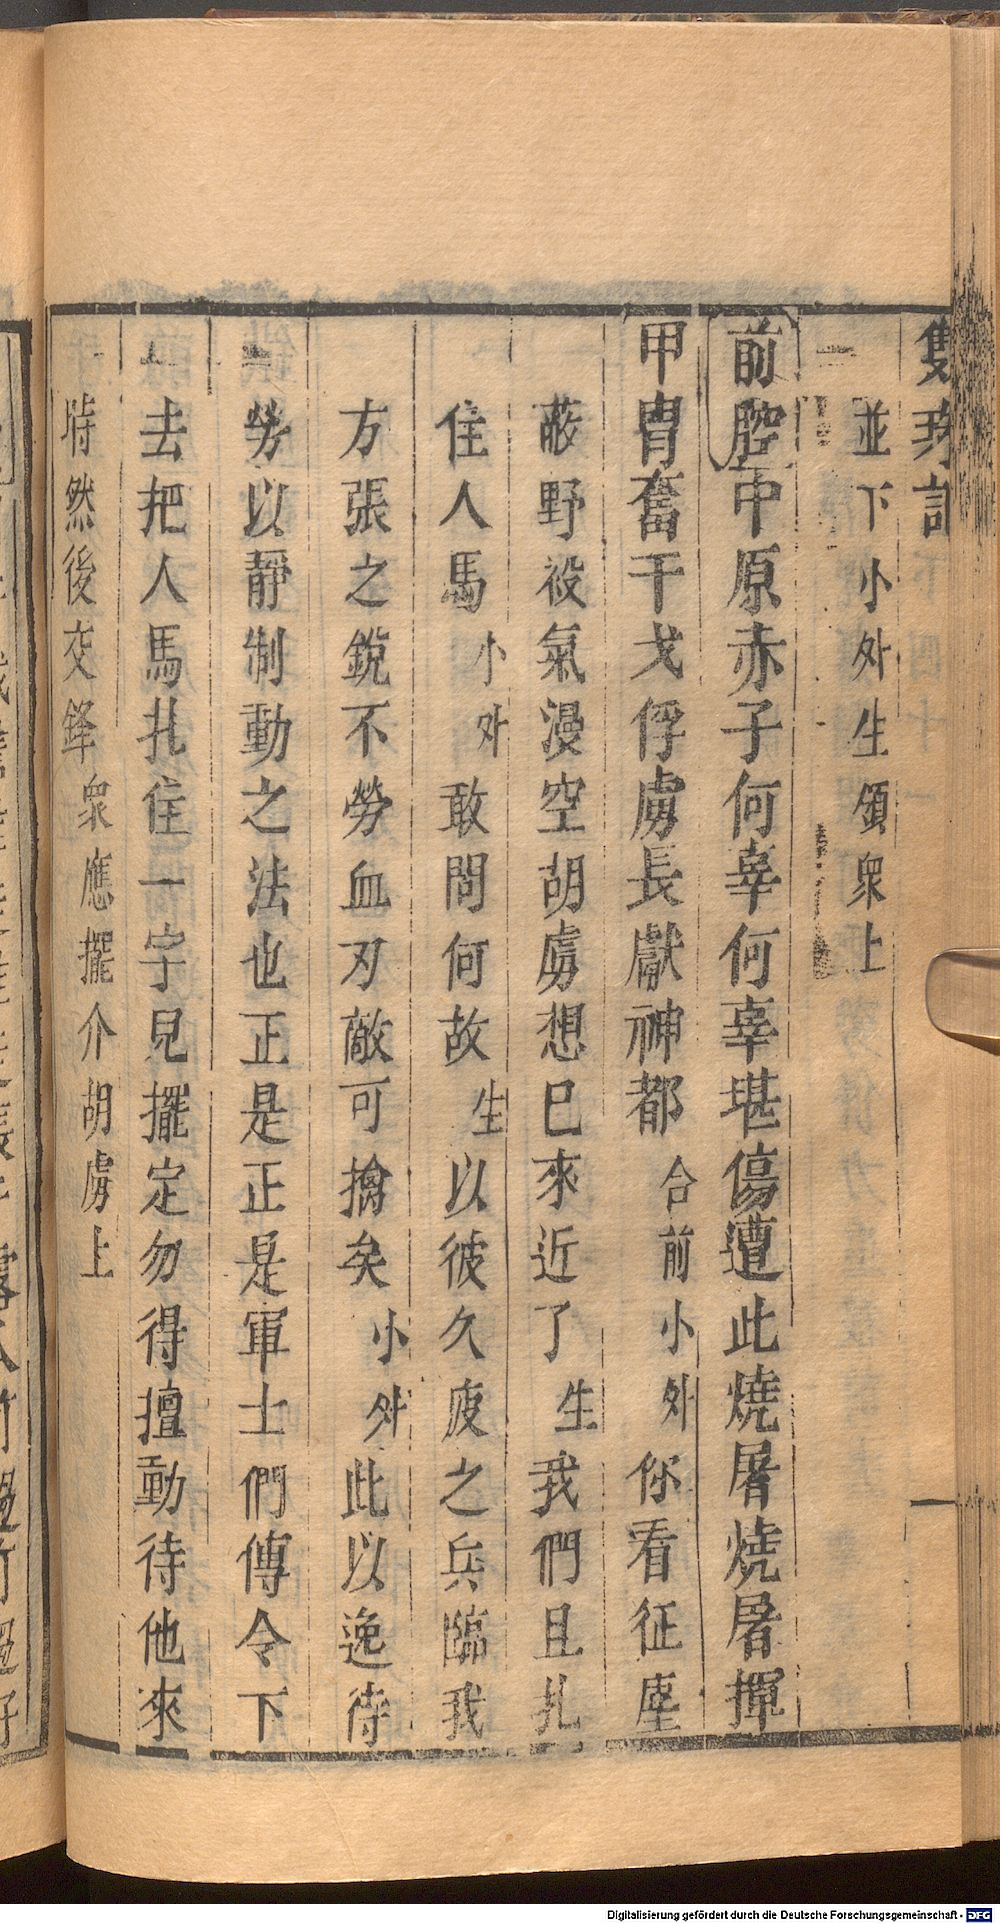 雙珠記
並下小外生領衆上
前腔中原赤子何辜何辜堪傷遭此燒屠燒屠揮
甲胄奮干戈俘虜長獻神都合前小外你看征塵
蔽野祲氣漫空胡虜想已來近了生我們且扎
住人馬小外敢問何故生以彼久疲之兵臨我
方張之銳不勞血刃敵可擒矣小外此以逸待
勞以靜制動之法也正是正是軍士們傳令下
去把人馬扎住一字兒擺定勿得擅動待他來
時然後交鋒衆應擺介胡虜上
Digitalisierung gefördert durch die Deutsche Forschungsgemeinschaft - DFG